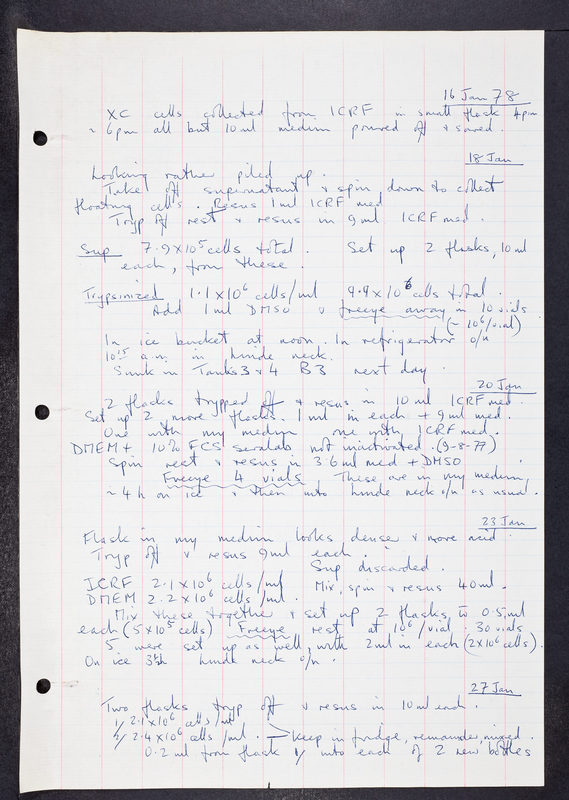 16 Jan 78
XC cells collected from ICRF in small flask 4pm
~ 6pm all but 10 ml medium poured off & saved.
18 Jan
Looking rather piled up.
Take off supernatant & spin down to collect
floating cells. Resus 1 ml ICRF med
Tryp off rest & resus in 9 ml ICRF med.
Sup 7.9 x 10⁵ cells total. Set up 2 flasks, 10 ml
each, from these.
Trypsinized 1.1 x 10⁶ cells/ml 9.9 x 10⁶ cells total.
Add 1 ml DMSO & freeze away in 10 vials
(~ 10⁶/vial)
In ice bucket at noon. In refrigerator o/n
10¹⁵ a.m. in linde neck.
Sunk in Tanks 3 & 4 B3 next day.
20 Jan
2 flasks trypped off & resus in 10 ml ICRF med.
Set up 2 more flasks. 1 ml in each + 9 ml med.
One with my medium one with ICRF med.
DMEM + 10% FCS seralab not inactivated. (9-8-77)
Spin rest & resus in 3.6 ml med + DMSO
Freeze 4 vials These are in my medium.
~ 4 h on ice & then into linde neck o/n as usual.
23 Jan
Flask in my medium looks denser & more acid.
Tryp off & resus 9 ml each.
Sup discarded.
ICRF 2.1 x 10⁶ cells/ml Mix, spin & resus 40 ml.
DMEM 2.2 x 10⁶ cells/ml.
Mix these together & set up 2 flasks c̄ 0.5 ml
each (5 x 10⁵ cells) Freeze rest at 10⁶/vial - 30 vials
5 were set up as well with 2 ml in each (2 x 10⁶ cells).
On ice linde neck o/n.
27 Jan
Two flasks tryp off & resus in 10 ml each.
1/ 2.1 x 10⁶ cells/ml
2/ 2.4 x 10⁶ cells/ml. Keep in fridge, remainder, mixed.
0.2 ml from flask 1/ into each of 2 new bottles